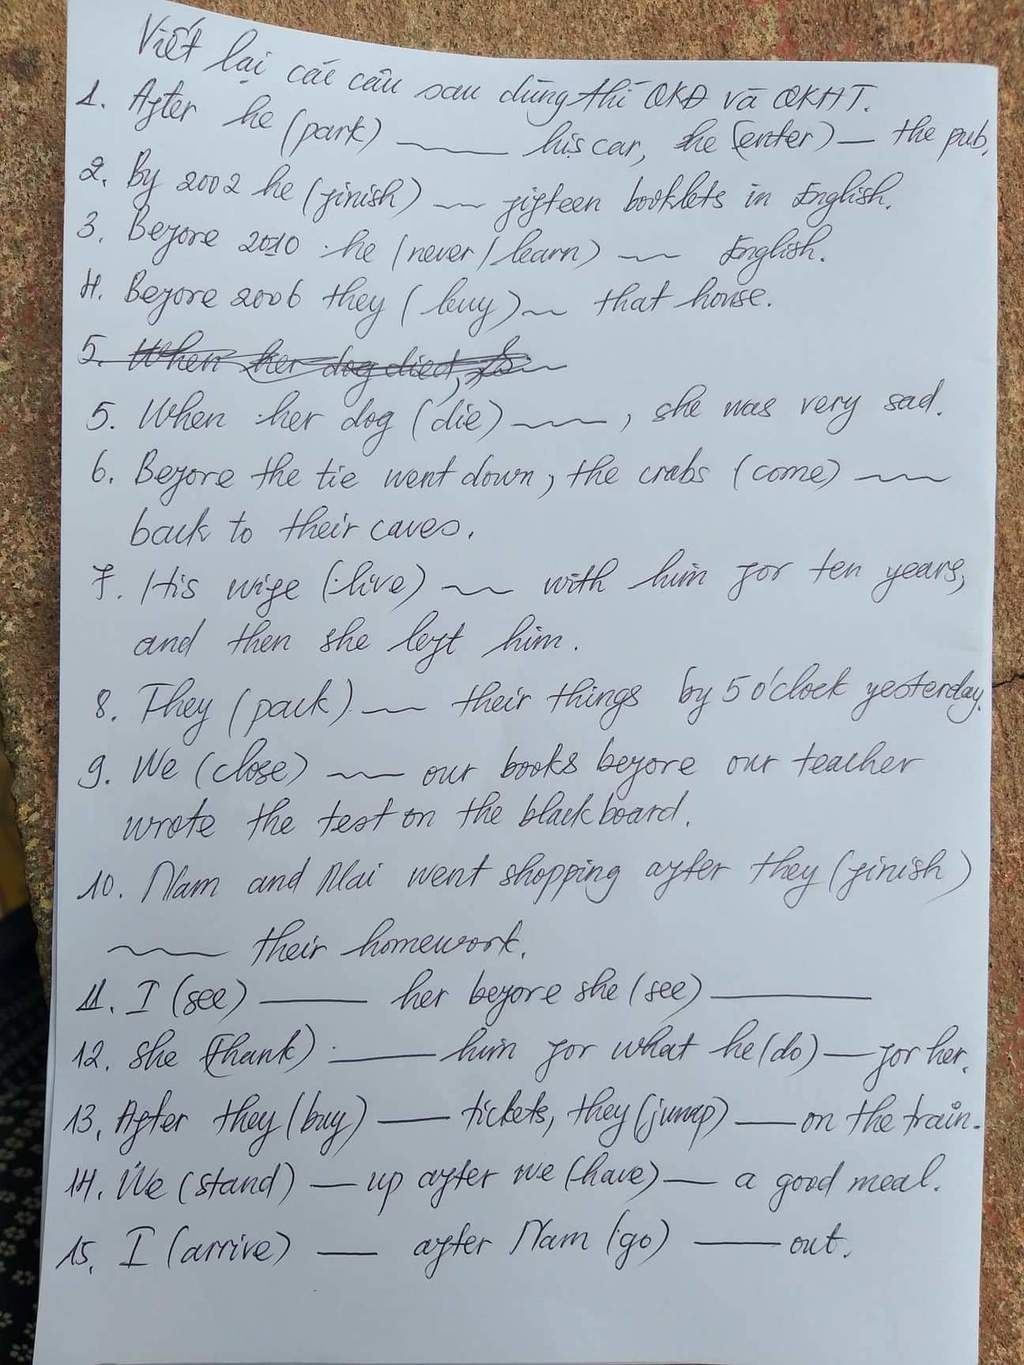 Viết lại các câu sau dùng thì QKĐ và QKHT.
1. After he (park) ____ his car, she (enter) __ the pub.
2. By 2002 he (finish) __ fifteen booklets in English.
3. Before 2010 he (never / learn) __ English.
4. Before 2006 they (buy) __ that house.
5. When her dog died,
5. When her dog (die) ___, she was very sad.
6. Before the tie went down, the crabs (come) ___
back to their caves.
7. His wife (live) __ with him for ten years,
and then she left him.
8. They (pack) __ their things by 5 o'clock yesterday.
9. We (close) __ our books before our teacher
wrote the test on the blackboard.
10. Nam and Mai went shopping after they (finish)
____ their homework.
11. I (see) ____ her before she (see) ____
12. She (thank) ____ him for what he (do) __ for her.
13. After they (buy) ___ tickets, they (jump) ___ on the train.
14. We (stand) __ up after we (have) __ a good meal.
15. I (arrive) __ after Nam (go) ___ out.